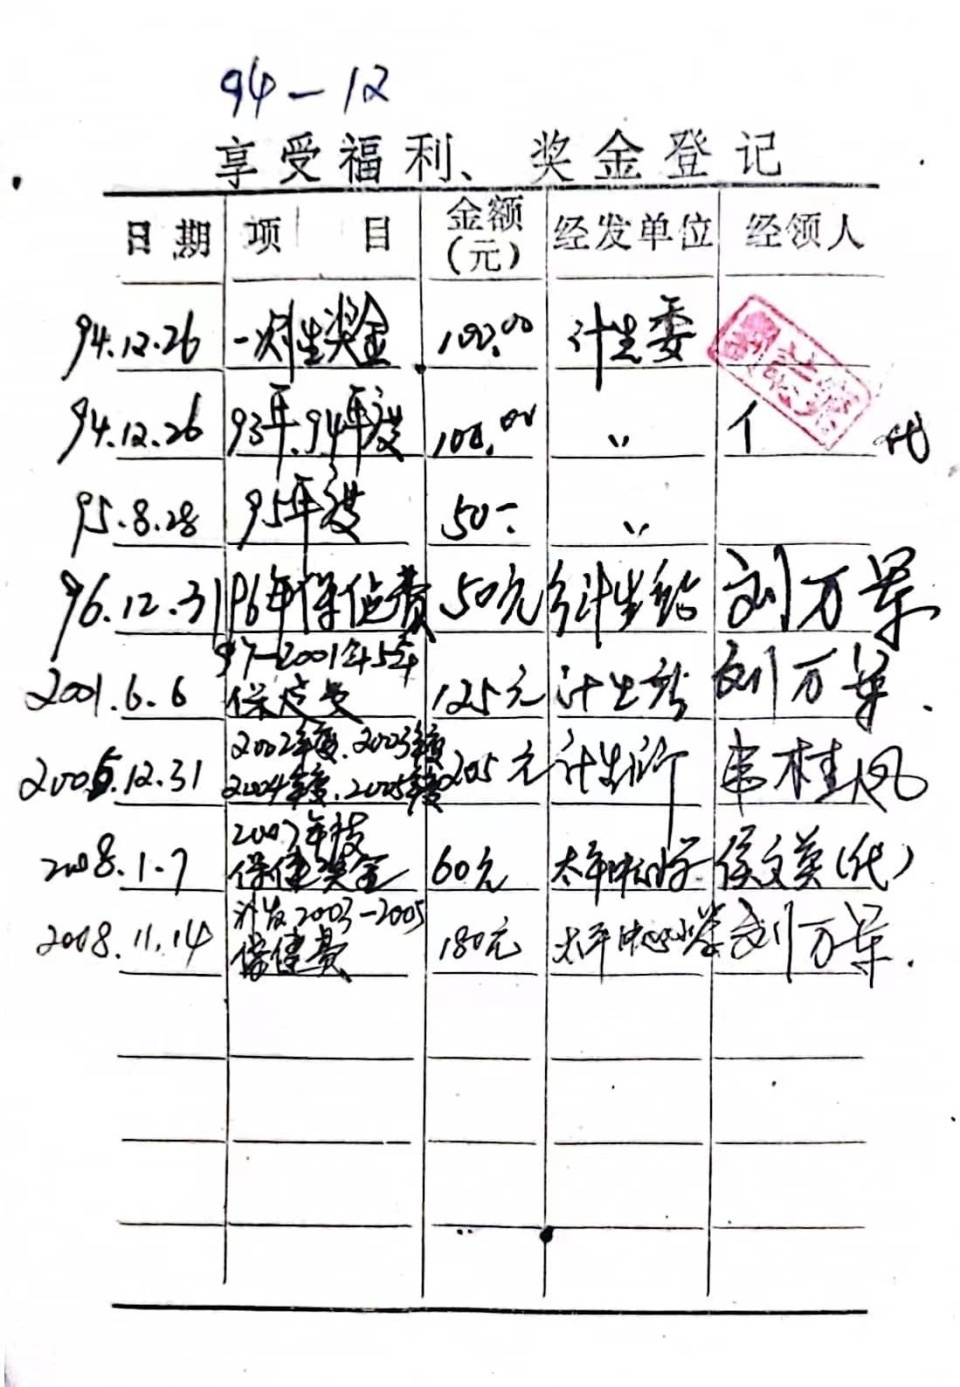 94-12
享受福利、奖金登记
日期 项目 金额(元) 经发单位 经领人
94.12.26 一次性奖金 100.00 计生委
94.12.26 93年.94年度 100.00 〃 代
95.8.28 95年度 50- 〃
96.12.31 96年保健费 50元 计生 刘万荣
97-2001年5年
2001.6.6 保健费 125元 计生 刘万荣.
2002年度.2003年度
2005.12.31 2004年度.2005年度 205元 计生所 韦桂凤
2007年度
2008.1.7 保健奖金 60元 太平中心小学 侯文英(代)
补发2003-2005
2008.11.14 保健费 180元 太平中心小学 刘万荣.